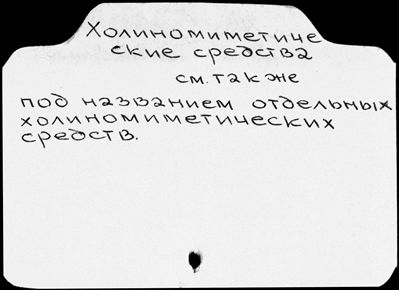 Холиномиметиче
ские средства
см. также
под названием отдельных
холиномиметических
средств.